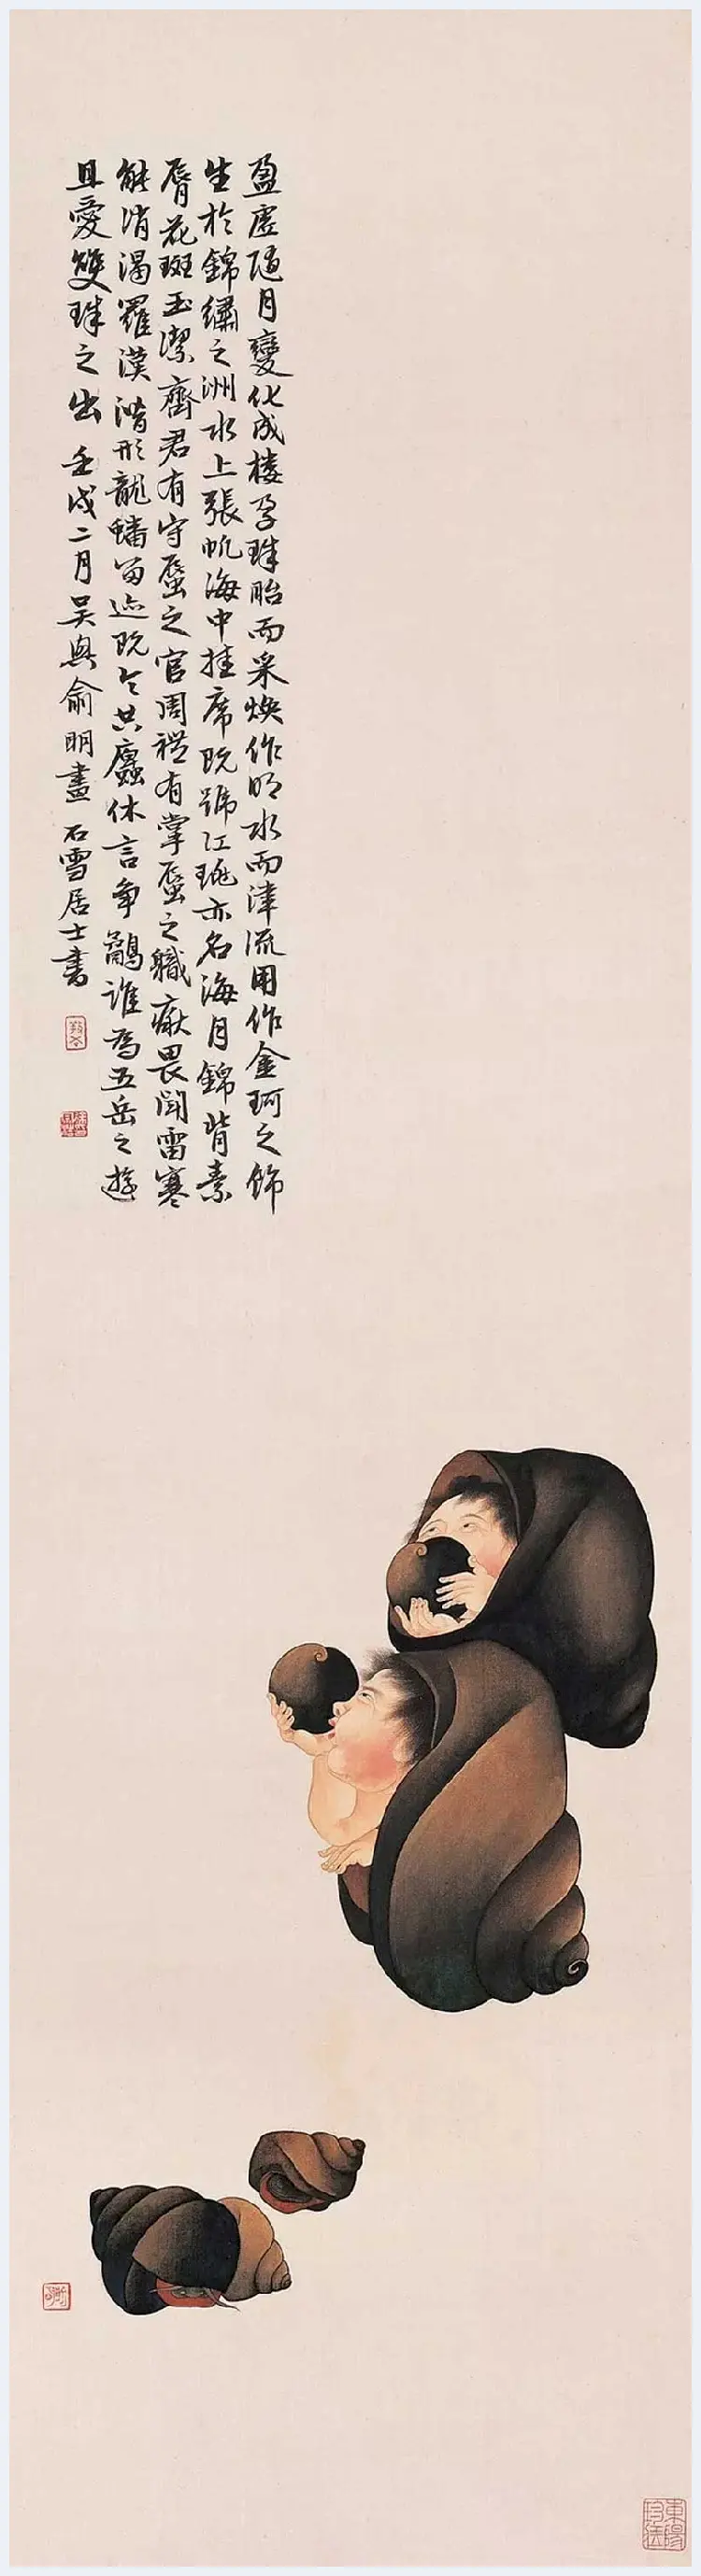 盈虛隨月變化成樓孕珠胎而采煥作明水而津流用作金珂之飾
生於錦繡之洲水上張帆海中挂席既號江珧亦名海月錦背素
脣花斑玉潔齊君有守蜃之官周禮有掌蜃之職厭畏聞雷寒
能消渴羅漢潛形龍蟠留迹既共蠡休言爭鷸誰為五岳之遊
且愛雙珠之出 壬戌二月吳興俞明畫 石雪居士書